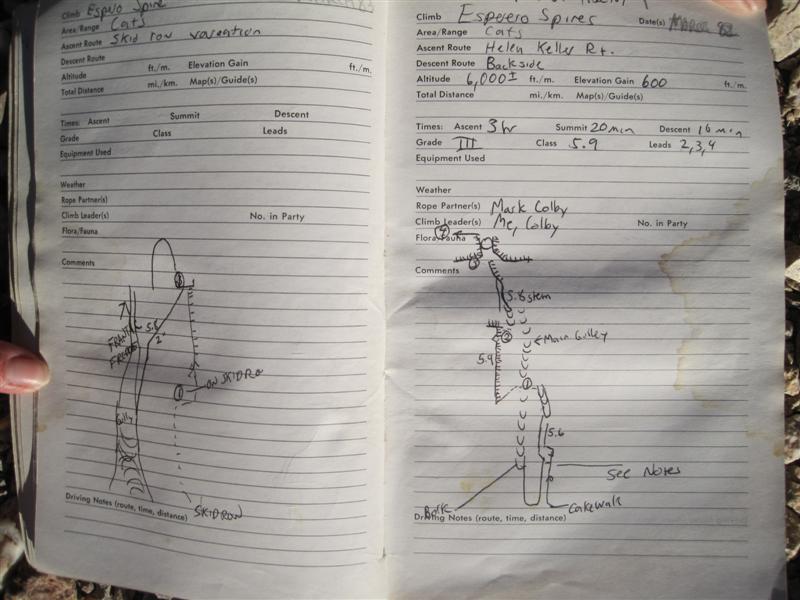 Climb Espero Spire
Area/Range Cats
Ascent Route Skid row varention
Descent Route
Altitude ft./m. Elevation Gain ft./m.
Total Distance mi./km. Map(s)/Guide(s)
Times: Ascent Summit Descent
Grade Class Leads
Equipment Used
Weather
Rope Partner(s)
Climb Leader(s) No. in Party
Flora/Fauna
Comments
3
5.6
2
FRANTIC
1
ON SKID RO
Gully
Driving Notes (route, time, distance)
SKID ROW
Climb Espevero Spires Date(s) March 83
Area/Range Cats
Ascent Route Helen Keller Rt.
Descent Route Backside
Altitude 6,000± ft./m. Elevation Gain 600 ft./m.
Total Distance mi./km. Map(s)/Guide(s)
Times: Ascent 3 hr Summit 20 min Descent 16 min
Grade III Class 5.9 Leads 2,3,4
Equipment Used
Weather
Rope Partner(s) Mark Colby
Climb Leader(s) Me, Colby No. in Party
Flora/Fauna
4
3
Comments
5.8 stem
2
Main Gulley
5.9
1
5.6
See Notes
Cakewalk
Driving Notes (route, time, distance)